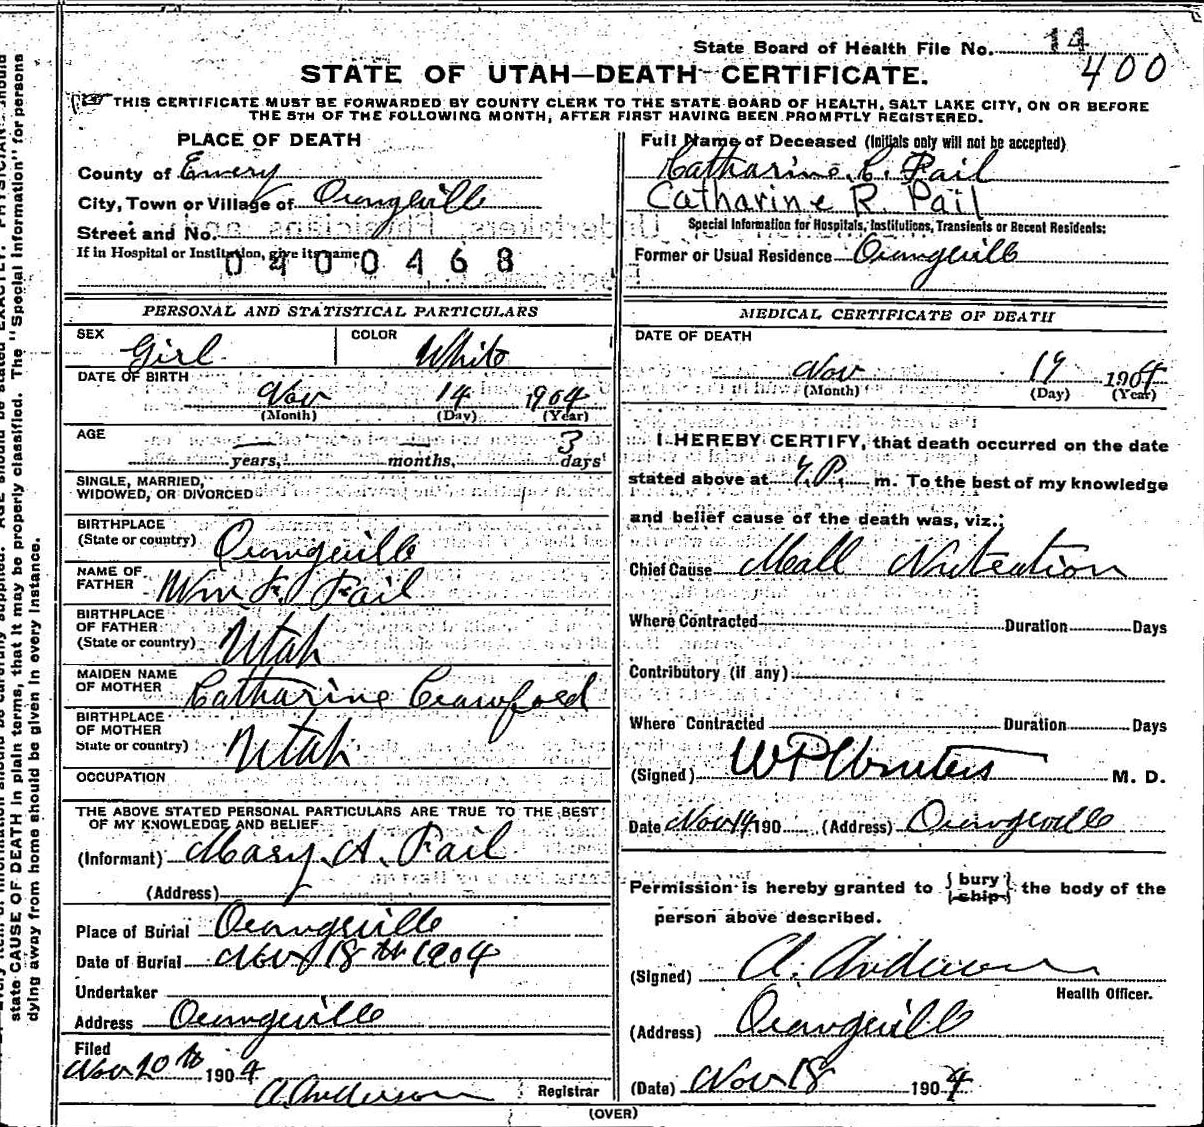 State Board of Health File No. 14
400
STATE OF UTAH—DEATH CERTIFICATE.
THIS CERTIFICATE MUST BE FORWARDED BY COUNTY CLERK TO THE STATE BOARD OF HEALTH, SALT LAKE CITY, ON OR BEFORE
THE 5TH OF THE FOLLOWING MONTH, AFTER FIRST HAVING BEEN PROMPTLY REGISTERED.
PLACE OF DEATH
County of Emery
City, Town or Village of Orangeville
Street and No.
If in Hospital or Institution, give its name
0400468
Full Name of Deceased (Initials only will not be accepted)
Catharine C. Pail
Catharine R. Pail
Special Information for Hospitals, Institutions, Transients or Recent Residents:
Former or Usual Residence Orangeville
PERSONAL AND STATISTICAL PARTICULARS
SEX Girl COLOR White
DATE OF BIRTH
Nov 14 1904
(Month) (Day) (Year)
AGE
— years, — months, 3 days
SINGLE, MARRIED,
WIDOWED, OR DIVORCED
BIRTHPLACE
(State or country) Orangeville
NAME OF
FATHER Wm F. Fail
BIRTHPLACE
OF FATHER
(State or country) Utah
MAIDEN NAME
OF MOTHER Catharine Crawford
BIRTHPLACE
OF MOTHER
State or country) Utah
OCCUPATION
THE ABOVE STATED PERSONAL PARTICULARS ARE TRUE TO THE BEST
OF MY KNOWLEDGE AND BELIEF
(Informant) Mary A. Fail
(Address)
Place of Burial Orangeville
Date of Burial Nov 18th 1904
Undertaker
Address Orangeville
Filed
Nov 20th 1904
A. Anderson Registrar
MEDICAL CERTIFICATE OF DEATH
DATE OF DEATH
Nov 17 1904
(Month) (Day) (Year)
I HEREBY CERTIFY, that death occurred on the date
stated above at P. m. To the best of my knowledge
and belief cause of the death was, viz.:
Chief Cause Mall Nuteation
Where Contracted Duration Days
Contributory (if any)
Where Contracted Duration Days
(Signed) W P Winters M. D.
Date Nov 190 (Address) Orangeville
Permission is hereby granted to {bury
ship} the body of the
person above described.
(Signed) A. Anderson
Health Officer.
(Address) Orangeville
(Date) Nov 18 1904
(OVER)
state CAUSE OF DEATH in plain terms, that it may be properly classified. The "Special Information" for persons
dying away from home should be given in every instance.